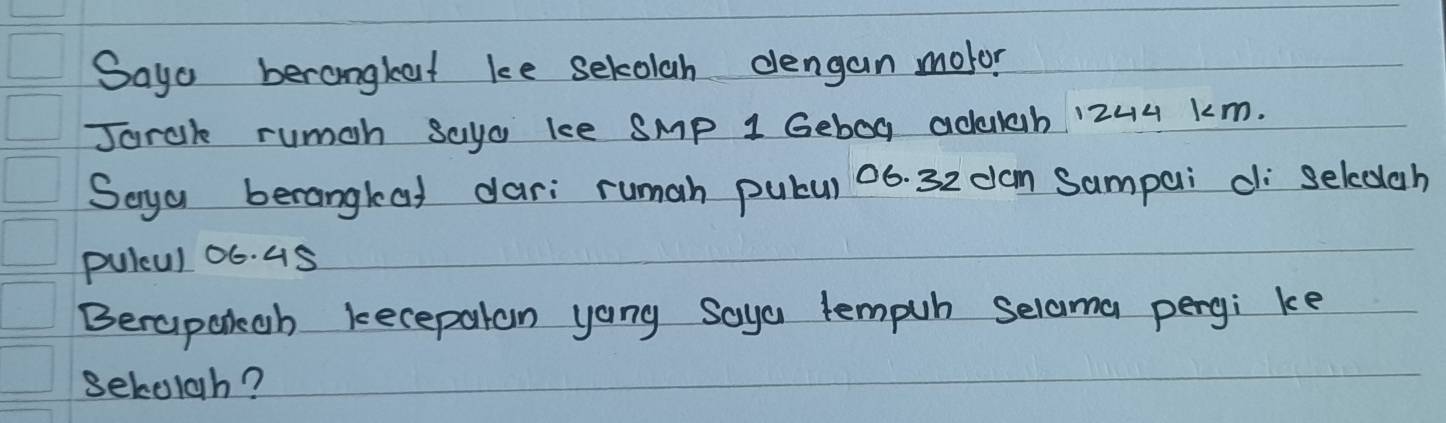 Saya berangkat ke sekolah dengan motor
Jarak rumah saya ke SMP 1 Gebog adalah 1244 km.
Saya berangkat dari rumah pukul 06.32 dan sampai di sekolah
pukul 06.45
Berapakah kecepatan yang saya tempuh selama pergi ke
sekolah?